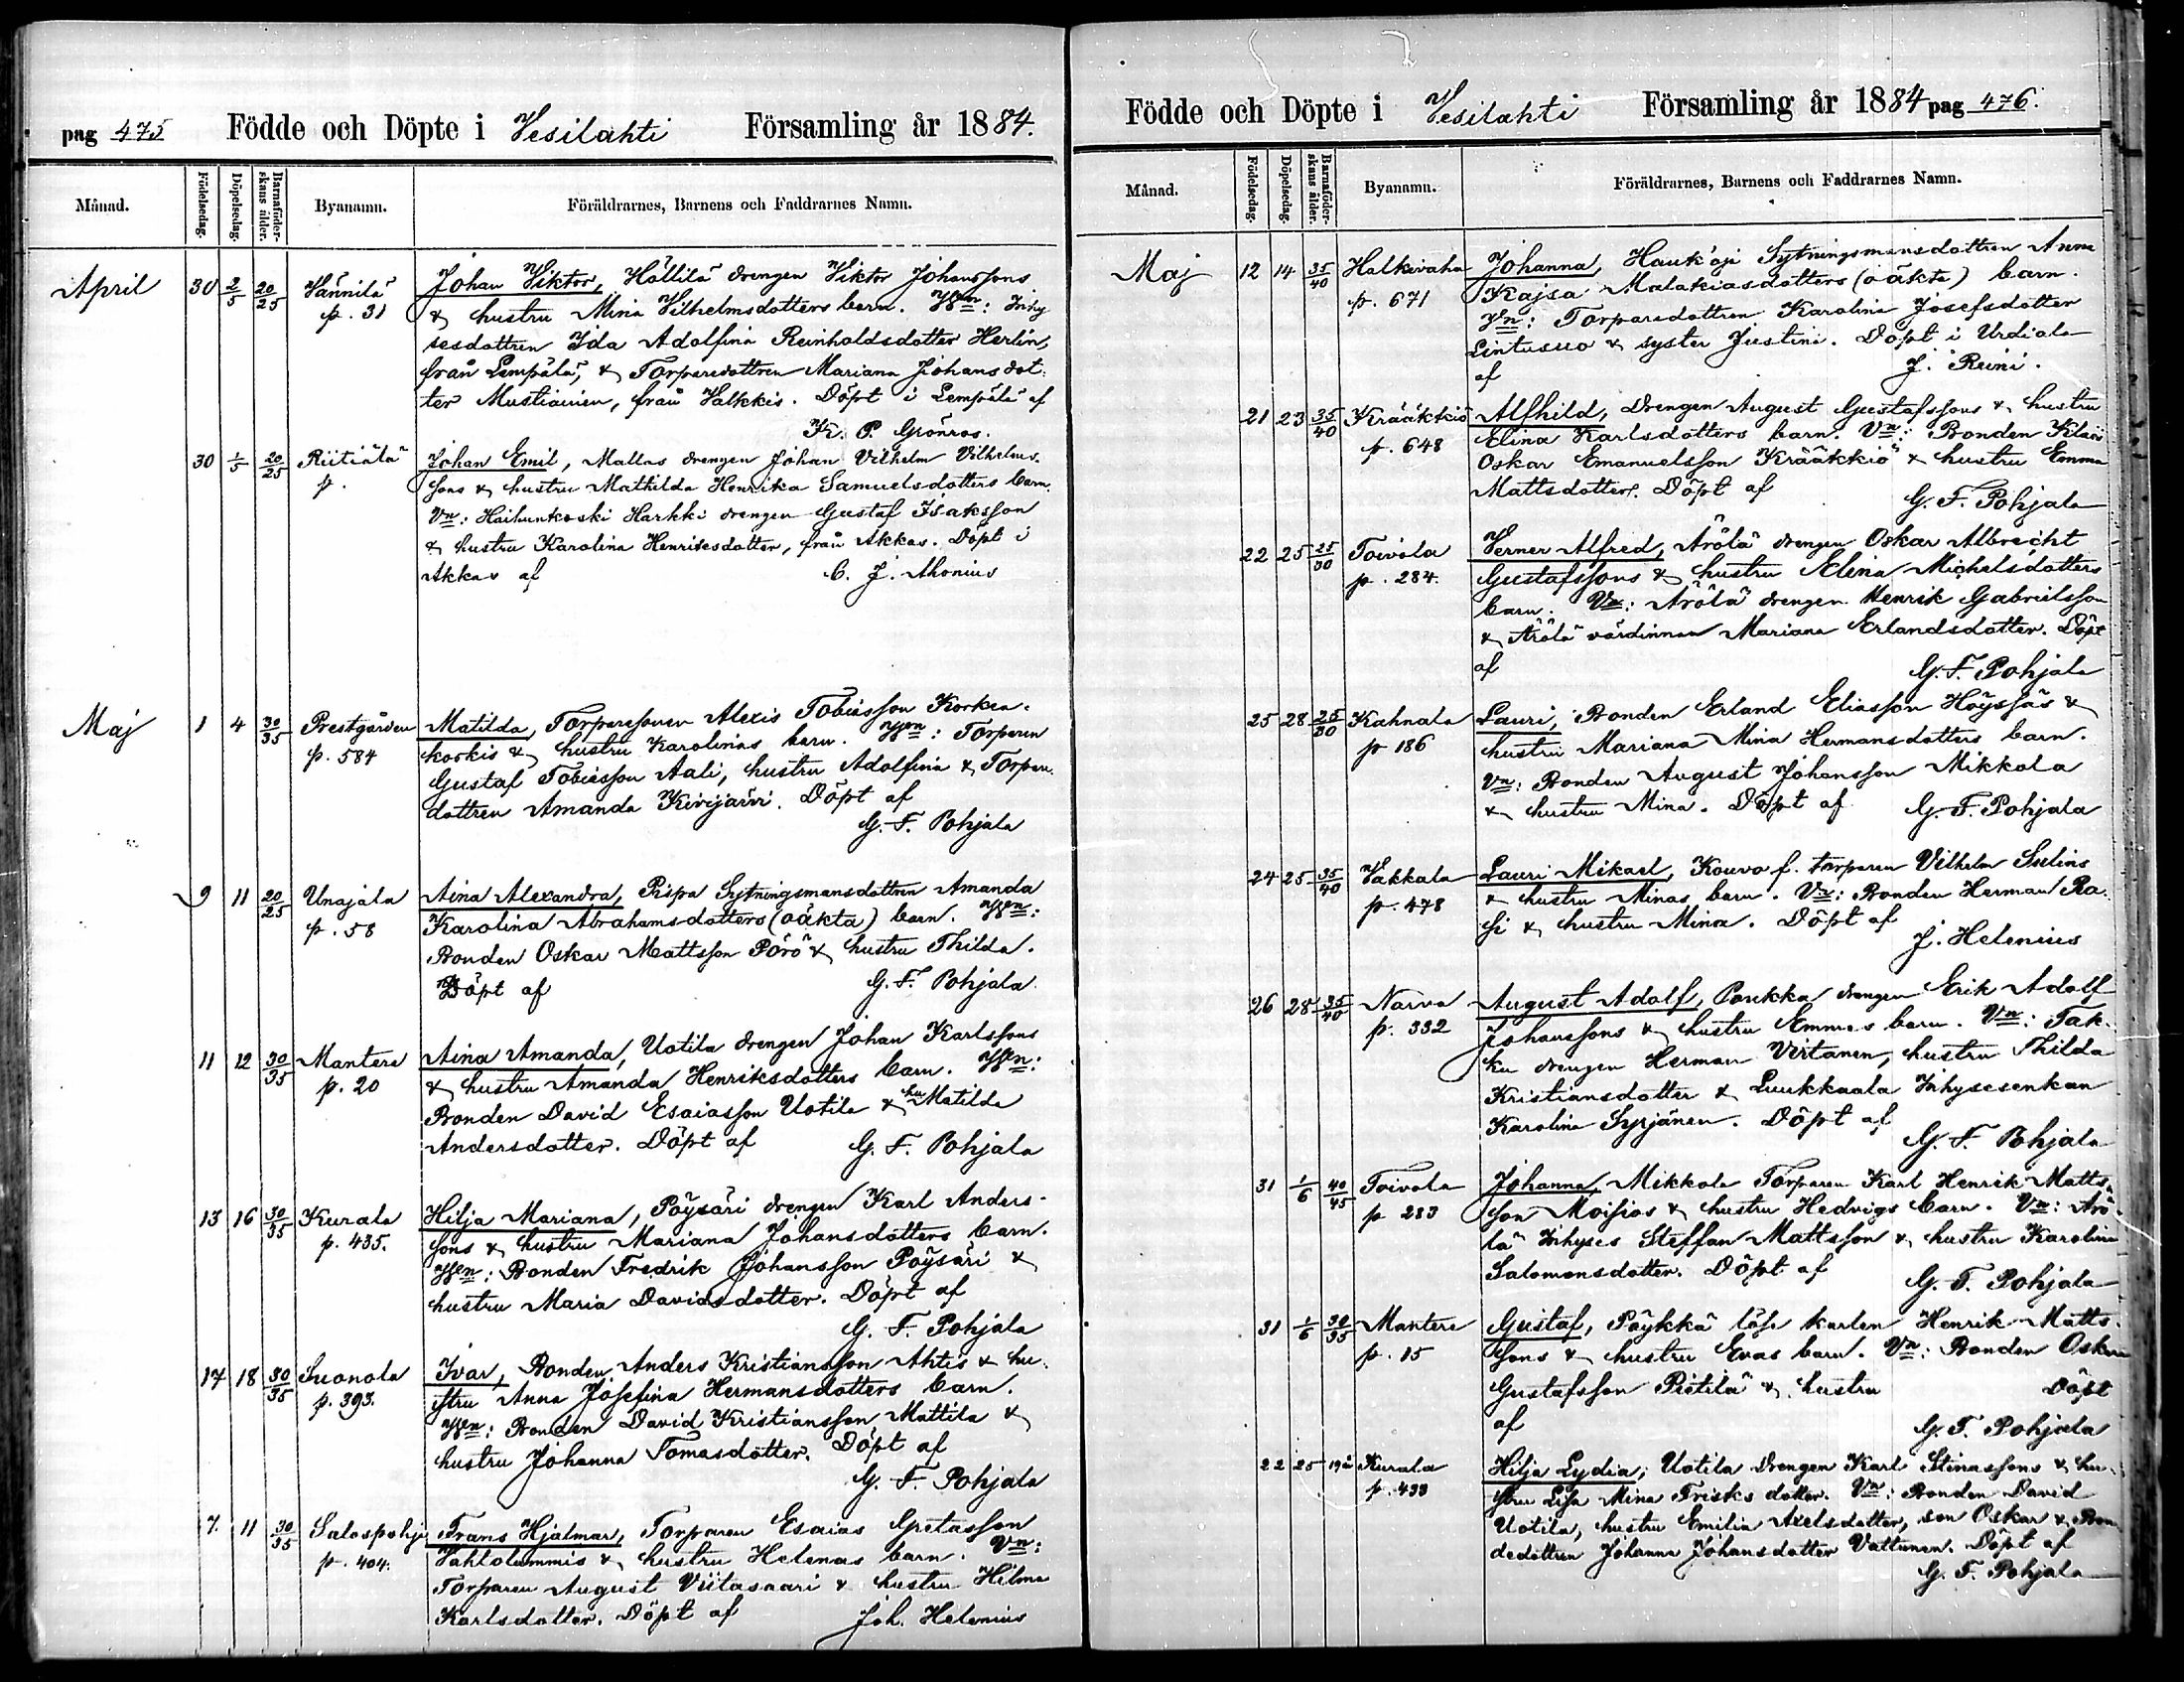 pag 475 Födde och Döpte i Vesilahti Församling år 1884.
Månad. Födelsedag. Döpelsedag. Barnaföderskans ålder. Byanamn. Föräldrarnes, Barnens och Faddrarnes Namn.
April 30 2/5 20/25 Vännilä Johan Viktor, Hällilä drengen Viktor Johanssons
p. 31 & hustru Mina Vilhelmsdotters barn. Vn: Inhy
sesdottren Ida Adolfina Reinholdsdotter Herlin,
från Lempälä, & Torparedottren Mariana Johansdot-
ter Mustianien, från Valkkis. Döpt i Lempälä af
K. P. Grönros.
30 1/5 20/25 Riitiälä Johan Emil, Mallas drengen Johan Vilhelm Vilhelms-
p. sons & hustru Mathilda Henrika Samuelsdotters barn.
Vn: Haihunkoski Harkki drengen Gustaf Isaksson
& hustru Karolina Henriksdotter, från Akkas. Döpt i
Akkas af C. J. Ahonius
Maj 1 4 30/35 Prestgården Matilda, Torparesonen Alexis Tobiasson Korkea-
p. 584 korkis & hustru Karolinas barn. Vn: Torparen
Gustaf Tobiasson Aali, hustru Adolfina & Torpare
dottren Amanda Kivijärvi. Döpt af
G. F. Pohjala
9 11 20/25 Unajala Aina Alexandra, Pispa Sytningsmansdottren Amanda
p. 58 Karolina Abrahamsdotters (oäkta) barn. Vn:
Bonden Oskar Mattsson Pörö & hustru Thilda.
Döpt af G. F. Pohjala.
11 12 30/35 Mantere Aina Amanda, Uotila drengen Johan Karlssons
p. 20 & hustru Amanda Henriksdotters barn. Vn:
Bonden David Esaiasson Uotila & hu Matilda
Andersdotter. Döpt af G. F. Pohjala
13 16 30/35 Kurala Hilja Mariana, Pöysäri drengen Karl Anders-
p. 435. sons & hustru Mariana Johansdotters barn.
Vn: Bonden Fredrik Johansson Pöysäri &
hustru Maria Davidsdotter. Döpt af
G. F. Pohjala
17 18 30/35 Suonola Ivar, Bonden Anders Kristiansson Ahtis & hu-
p. 393. stru Anna Josefina Hermansdotters barn.
Vn: Bonden David Kristiansson Mattila &
hustru Johanna Tomasdotter. Döpt af
G. F. Pohjala
7. 11 30/35 Salospohja Frans Hjalmar, Torparen Esaias Gretasson
p. 404. Vahlolammis & hustru Helenas barn. Vn:
Torparen August Viitasaari & hustru Hilma
Karlsdotter. Döpt af Joh. Helenius
Födde och Döpte i Vesilahti Församling år 1884 pag 476.
Månad. Födelsedag. Döpelsedag. Barnaföderskans ålder. Byanamn. Föräldrarnes, Barnens och Faddrarnes Namn.
Maj 12 14 35/40 Halkivaha Johanna, Haukoja Sytningsmansdottren Anna
p. 671 Kajsa Malakiasdotters (oäkta) barn.
Vn: Torparedottren Karolina Josefsdotter
Lintusuo & syster Justina. Döpt i Urdiala
af J. Reini.
21 23 35/40 Krääkkiö Alfhild, Drengen August Gustafssons & hustru
p. 648 Elina Karlsdotters barn. Vn: Bonden Kläs
Oskar Emanuelsson Krääkkiö & hustru Emma
Mattsdotter. Döpt af G. F. Pohjala
22 25 25/30 Toivola Verner Alfred, Ärölä drengen Oskar Albrecht
p. 284. Gustafssons & hustru Elina Michelsdotters
barn. Vn: Ärölä drengen Henrik Gabrielsson
& Ärölä värdinnan Mariana Erlandsdotter. Döpt
af G. F. Pohjala
25 28 25/30 Kahnala Lauri, Bonden Erland Eliasson Höyssäs &
p 186 hustru Mariana Mina Hermansdotters barn.
Vn: Bonden August Johansson Mikkola
& hustru Mina. Döpt af G. F. Pohjala
24 25 35/40 Vakkala Lauri Mikael, Kouvo f. torparen Vilhelm Sulins
p. 478 & hustru Minas barn. Vn: Bonden Herman Ra-
si & hustru Mina. Döpt af
J. Helenius
26 28 35/40 Narva August Adolf, Poukka drengen Erik Adolf
p. 332 Johanssons & hustru Emmas barn. Vn: Tak-
ku drengen Herman Virtanen, hustru Thilda
Kristiansdotter & Luukkaala Inhysesenkan
Karolina Syrjänen. Döpt af
G. F. Pohjala
31 1/6 40/45 Toivola Johanna, Mikkola Torparen Karl Henrik Matts-
p 283 son Moisios & hustru Hedvigs barn. Vn: Ärö-
lä Inhyses Steffan Mattsson & hustru Karolina
Salomonsdotter. Döpt af G. F. Pohjala
31 1/6 30/35 Mantere Gustaf, Päykkä löse karlen Henrik Matts-
p. 15 sons & hustru Evas barn. Vn: Bonden Oskar
Gustafsson Pietilä & hustru Döpt
af G. F. Pohjala
22 25 19 å Kurala Hilja Lydia, Uotila drengen Karl Stinassons & hu-
p. 433 stru Lisa Mina Frisks dotter. Vn: Bonden David
Uotila, hustru Emilia Axelsdotter, son Oskar & Bon-
dedottren Johanna Johansdotter Vattunen. Döpt af
G. F. Pohjala